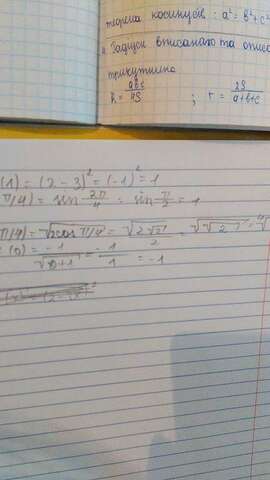 теорема косинусів : a² = b² + c²
4. Радіуси вписаного та опис
трикутника
R = abc/4S ; r = 2S/a+b+c
(1) = (2-3)² = (-1)² = 1
π/4) = sin 2π/4 = sin π/2 = 1
π/4) = √2cos π/4 = √2√2/2 = √√2 = ⁴√
(0) = -1/√0+1 = -1/1 = -1